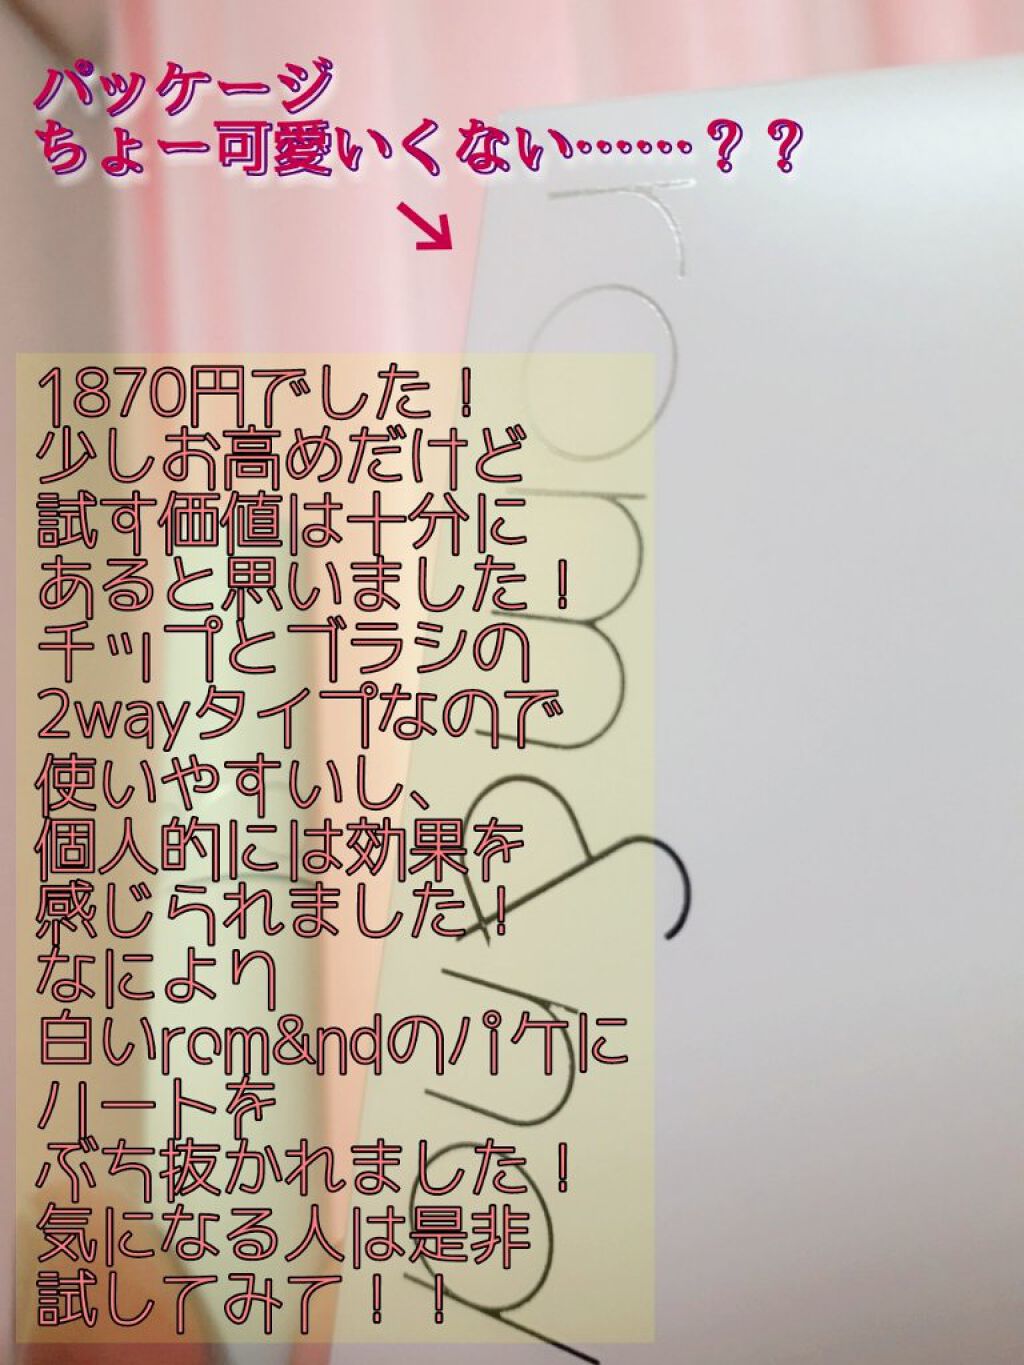 パッケージ
ちょー可愛いくない……？？
1870円でした！
少しお高めだけど
試す価値は十分に
あると思いました！
チップとブラシの
2wayタイプなので
使いやすいし、
個人的には効果を
感じられました！
なにより
白いrom&ndのパケに
ハートを
ぶち抜かれました！
気になる人は是非
試してみて！！
rom&nd